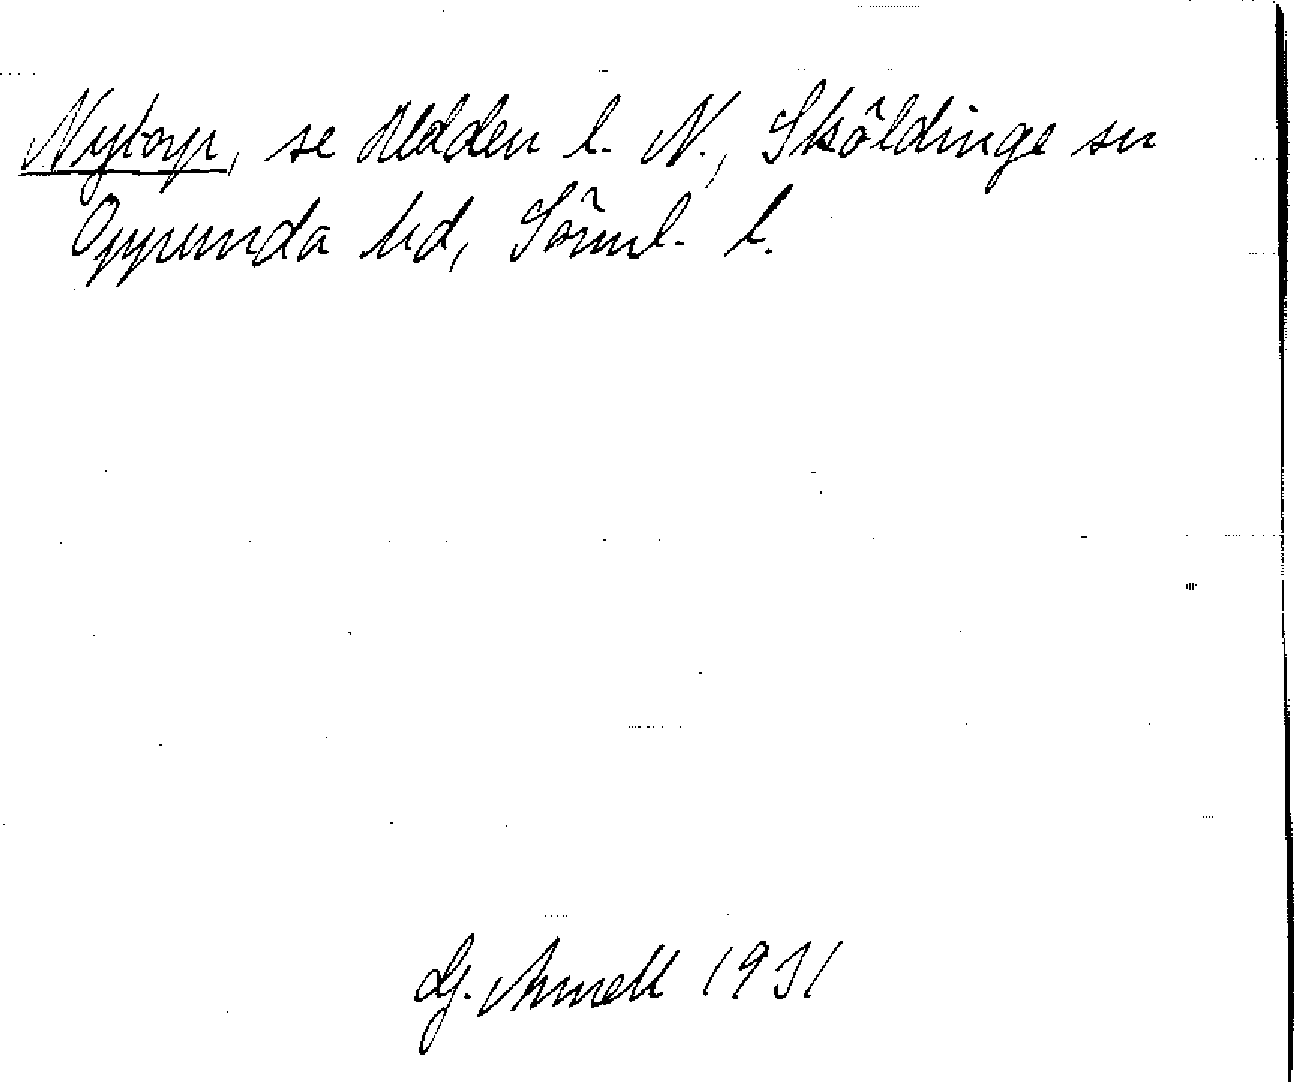 Nytorp, se Hedden l. N., Sköldinge sn
Oppunda hd, Söml. l.
G. Arnell 1931